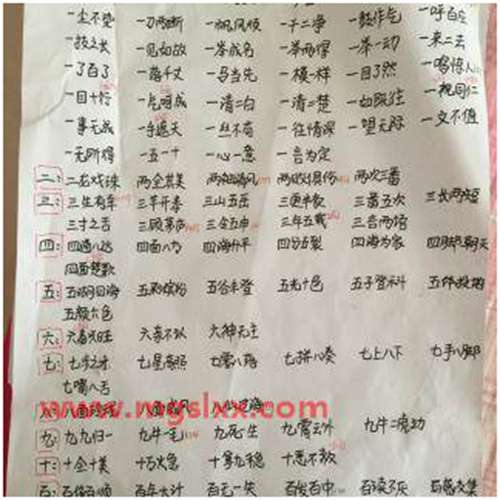 一尘不染 一刀两断 一帆风顺 一干二净 一鼓作气 一呼百应
一技之长 一见如故 一举成名 一举两得 一举一动 一来二去
一了百了 一落千丈 一马当先 一模一样 一目了然 一鸣惊人
一目十行 一气呵成 一清二白 一清二楚 一如既往 一视同仁
一事无成 一手遮天 一丝不苟 一往情深 一望无际 一文不值
一无所得 一五一十 一心一意 一言为定
二: 二龙戏珠 两全其美 两袖清风 两败俱伤 两次三番
三: 三生有幸 三羊开泰 三山五岳 三更半夜 三番五次 三长两短
三寸之舌 三顾茅庐 三令五申 三年五载
四: 四通八达 四面八方 四海升平 四分五裂 四海为家 四脚朝天
四面楚歌
五: 五湖四海 五彩缤纷 五谷丰登 五光十色 五子登科 五体投地
五颜六色
六: 六畜兴旺 六亲不认 六神无主
七: 七步之才 七星高照 七零八落 七拼八凑 七上八下 七手八脚
七嘴八舌
八: 八面玲珑 八面威风 八仙过海
www.mgslxx.com
九: 九九归一 九牛一毛 九死一生 九霄云外 九牛二虎
十: 十全十美 十万火急 十拿九稳 十恶不赦
百: 百依百顺 百年大计 百发百中 百读不厌